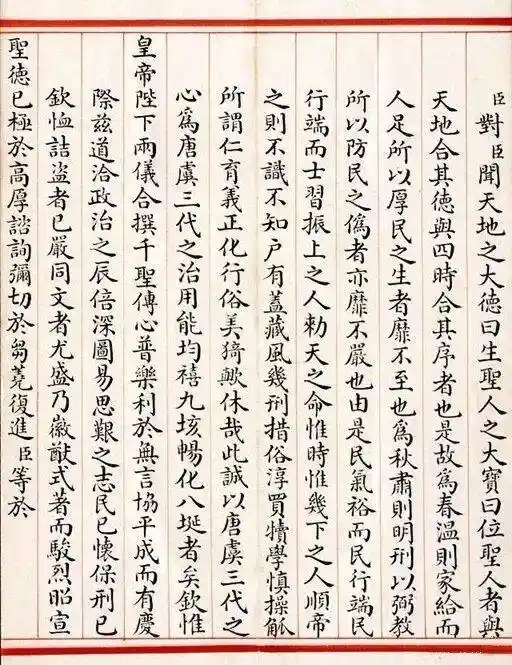 臣對臣聞天地之大德曰生聖人之大寶曰位聖人者與
天地合其德與四時合其序者也是故為春溫則家給而
人足所以厚民之生者靡不至也為秋肅則明刑以弼教
所以防民之偽者亦靡不嚴也由是民氣裕而民行端民
行端而士習振上之人勅天之命惟時惟幾下之人順帝
之則不識不知戶有蓋藏風幾刑措俗淳買犢學慎操觚
所謂仁育義正化行俗美猗歟休哉此誠以唐虞三代之
心為唐虞三代之治用能均禧九垓暢化八埏者矣欽惟
皇帝陛下兩儀合撰千聖傳心普樂利於無言協平成而有慶
際茲道洽政治之辰倍深圖易思艱之志民已懷保刑已
欽恤詰盜者已嚴同文者尤盛乃徽猷式著而駿烈昭宣
聖德已極於高厚諮詢彌切於芻蕘復進臣等於